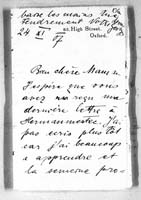 baise les mains
tendrement
24 XI 07
High Street.
Oxford.
Bon chère Maman
J'espère que vous
avez reçu une
dernière lettre à
je n'ai
pas écris plus tôt
car j'ai beaucoup
a apprendre et
la semaine pro-